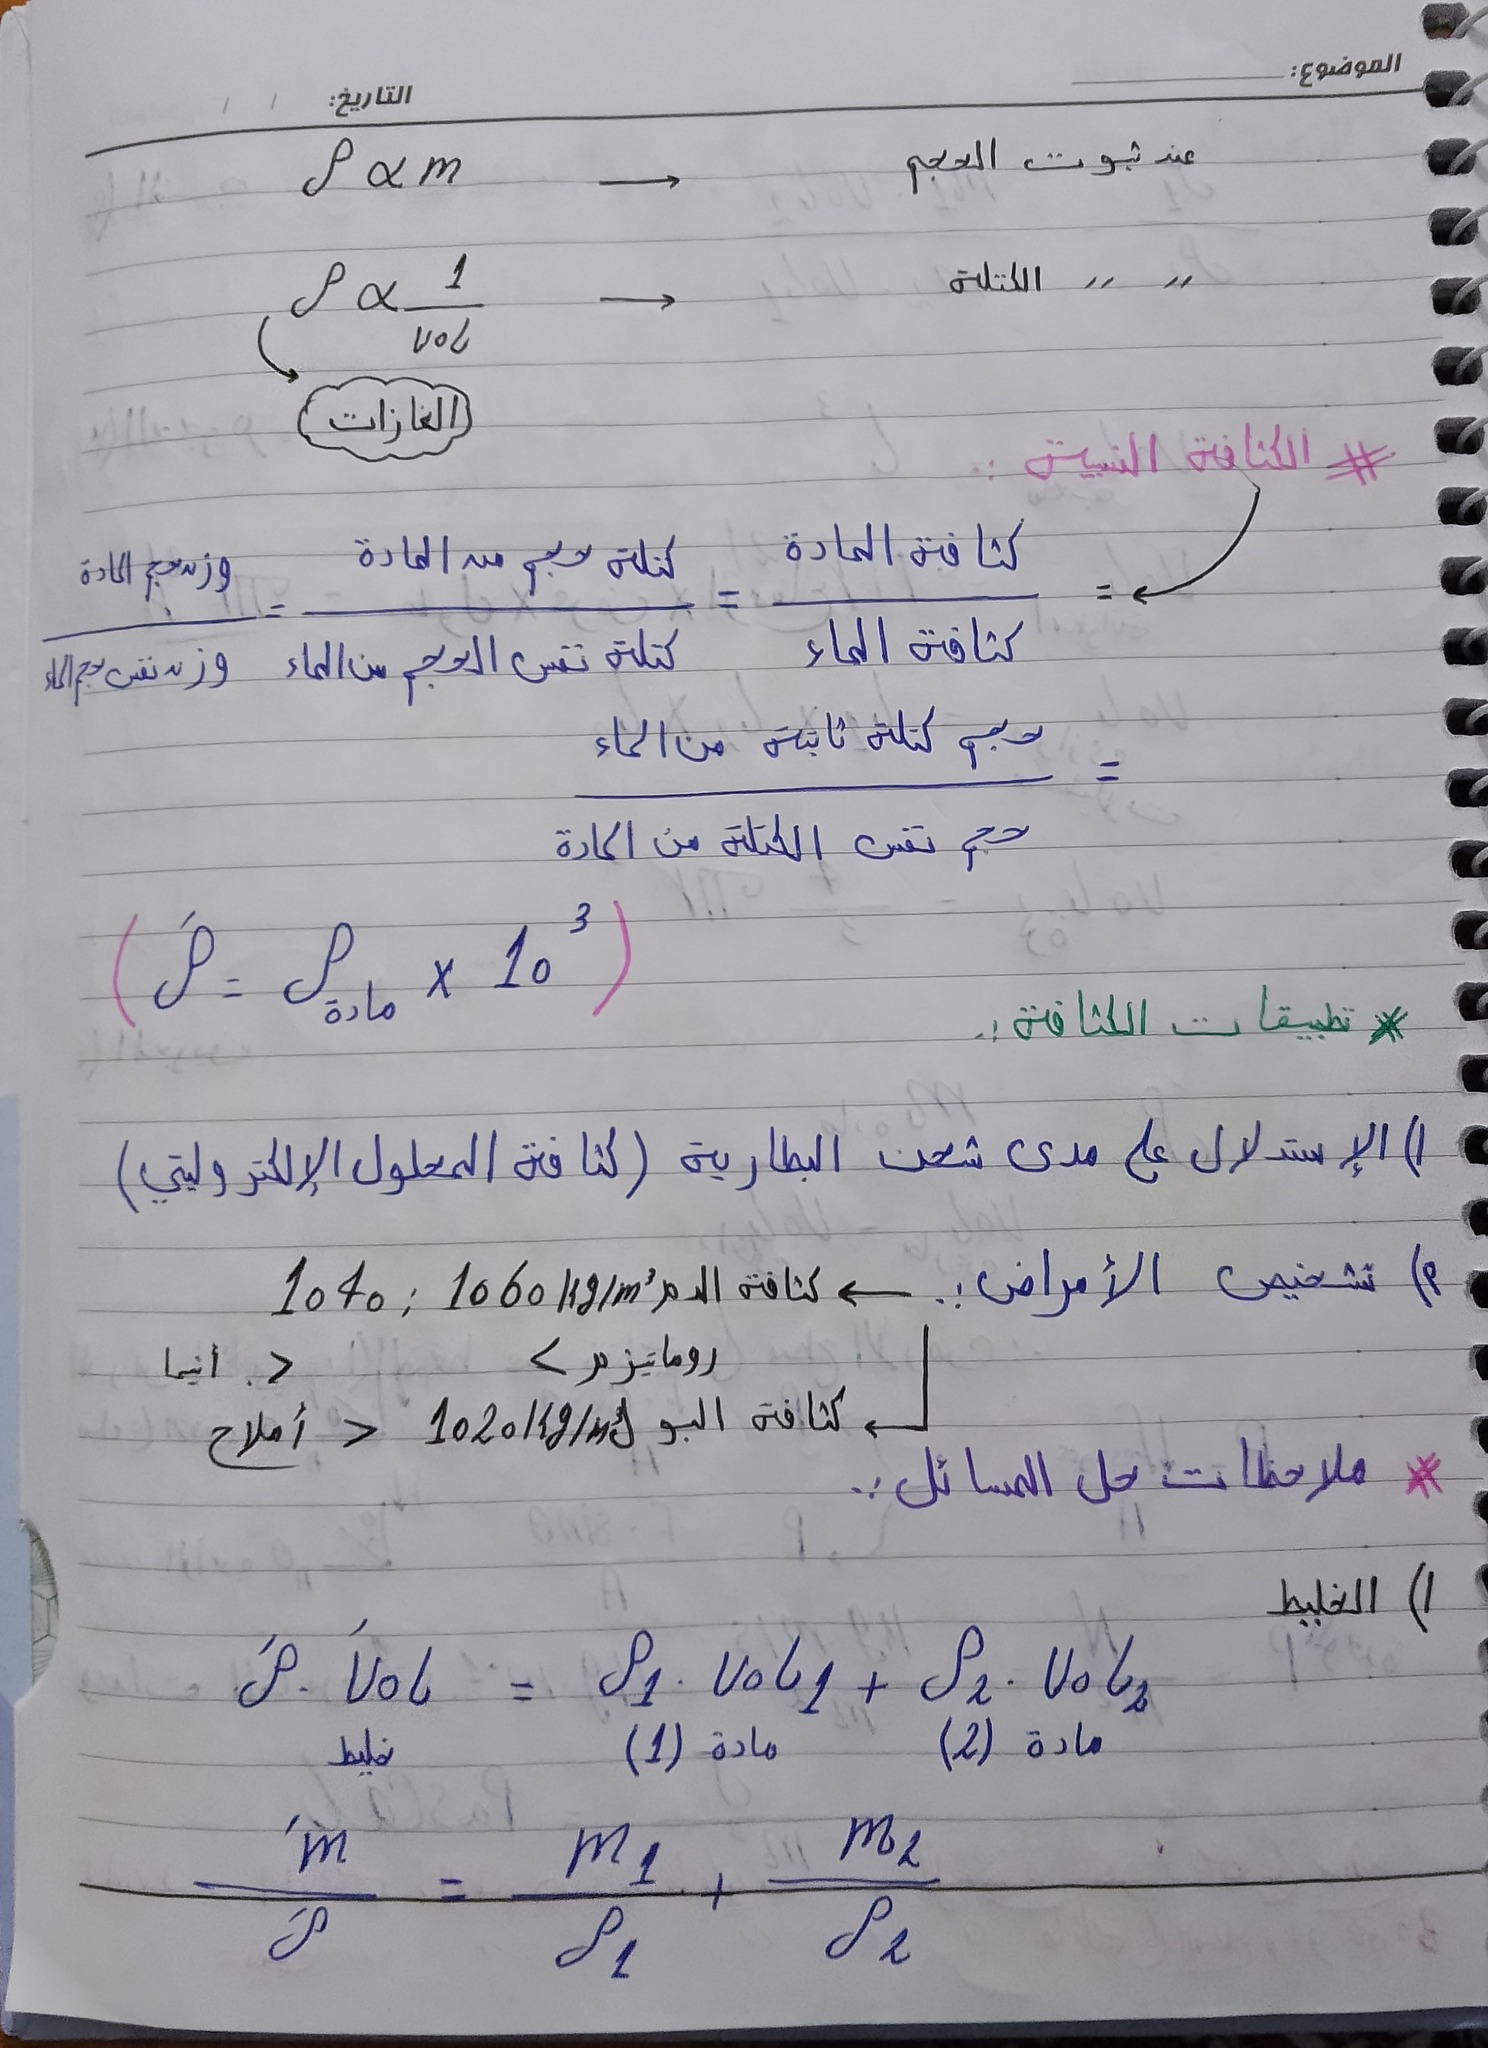 الموضوع:
التاريخ: / /
عند ثبوت الحجم → ρ ∝ m
〃 〃 الكتلة → ρ ∝ 1/Vol
الغازات
# الكثافة النسبية :.
= كثافة المادة / كثافة الماء = كتلة حجم من المادة / كتلة نفس الحجم من الماء = وزن حجم المادة / وزن نفس حجم الماء
= حجم كتلة ثابتة من الماء / حجم نفس الكتلة من المادة
(ρ́ = ρ مادة × 10³)
* تطبيقات الكثافة :.
١) الإستدلال على مدى شحن البطارية (كثافة المحلول الإلكتروليتي)
٢) تشخيص الأمراض :. ← كثافة الدم 1040 : 1060 kg/m³
روماتيزم < < . أنيما
كثافة البول 1020 kg/m³ < أملاح
* ملاحظات حل المسائل :.
١) الخليط
ρ́ . V́ol = ρ1 . Vol1 + ρ2 . Vol2
خليط مادة (1) مادة (2)
ḿ / ρ́ = m1 / ρ1 + m2 / ρ2